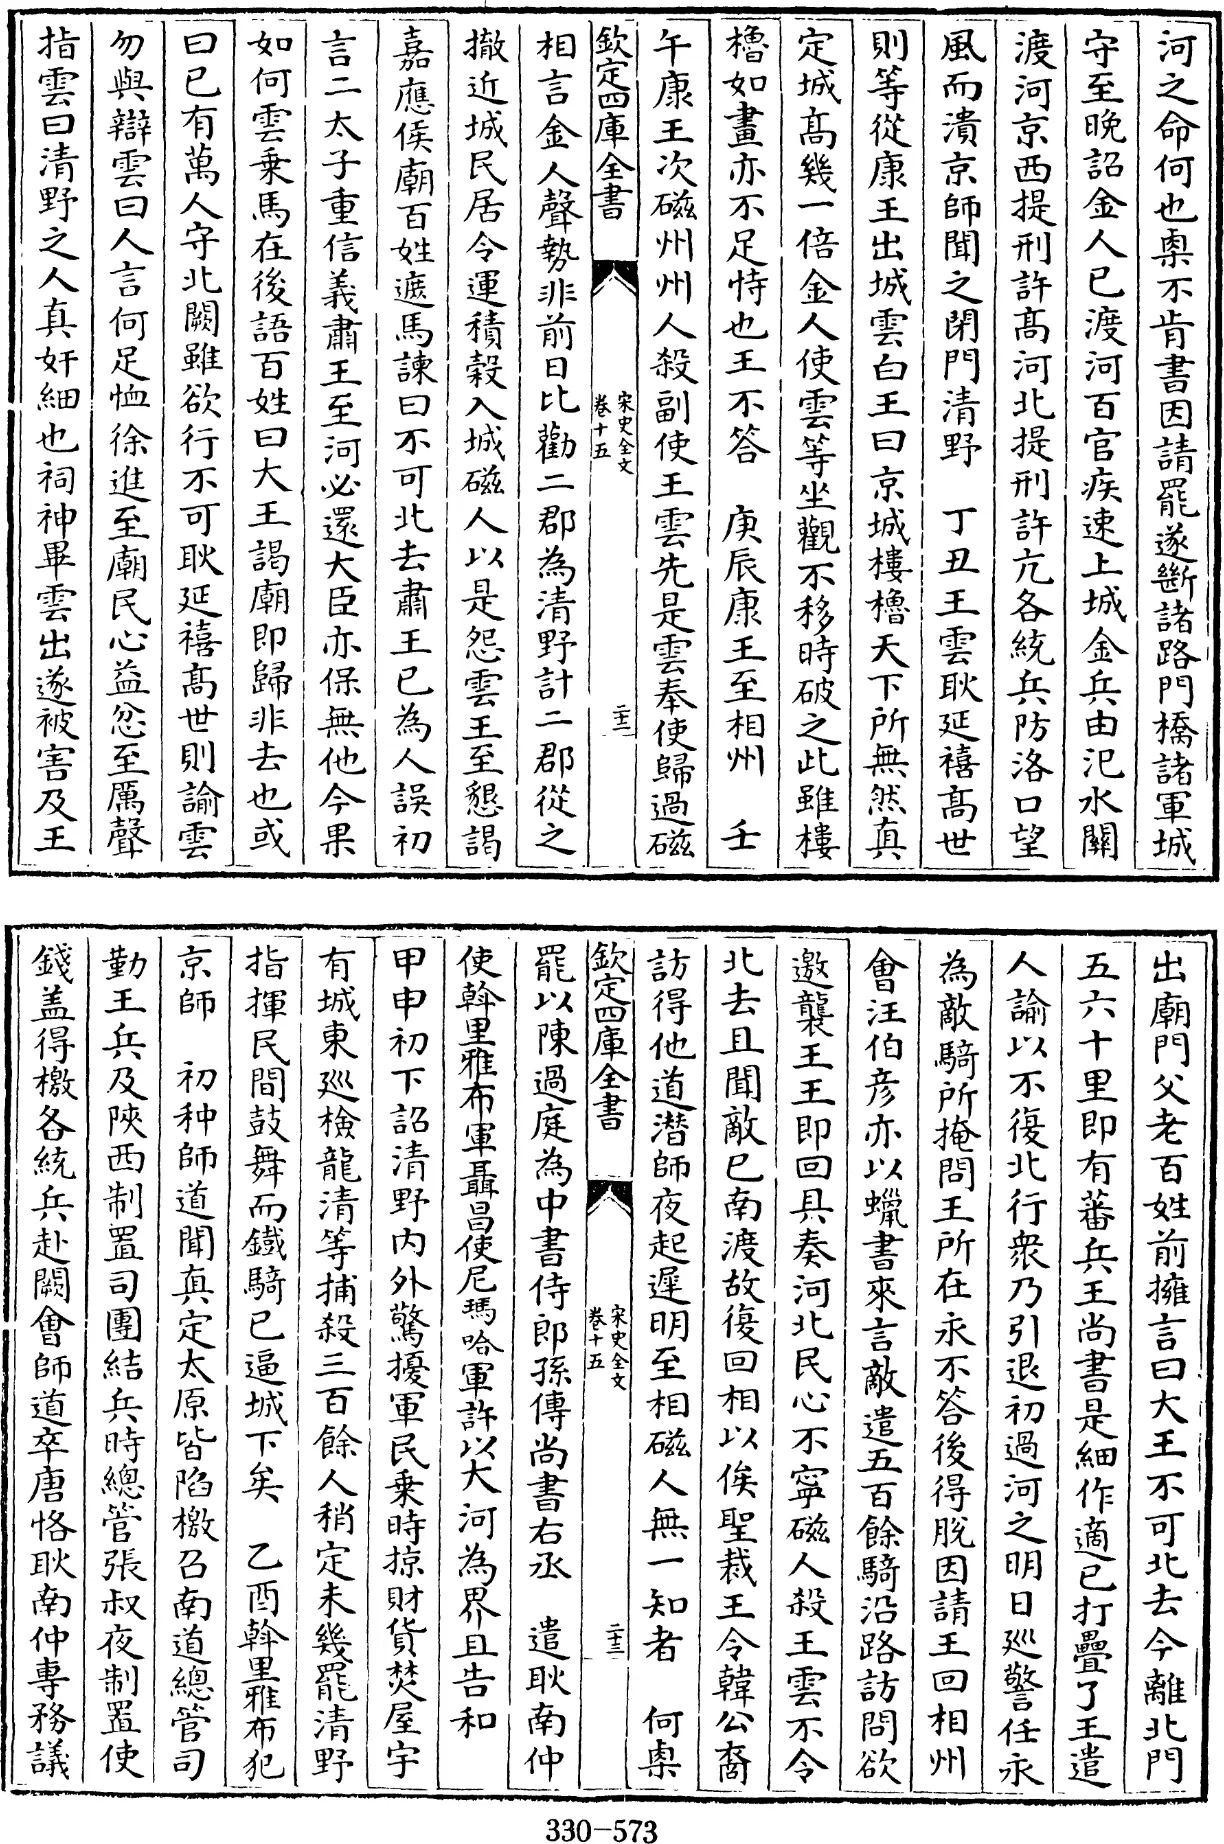 河之命何也㮚不肯書因請罷遂斷諸路門橋諸軍城
守至晚詔金人已渡河百官疾速上城金兵由汜水關
渡河京西提刑許髙河北提刑許亢各統兵防洛口望
風而潰京師聞之閉門清野　丁丑王雲耿延禧髙世
則等從康王出城雲白王曰京城樓櫓天下所無然真
定城髙幾一倍金人使雲等坐觀不移時破之此雖樓
櫓如畫亦不足恃也王不答　庚辰康王至相州　壬
午康王次磁州州人殺副使王雲先是雲奉使歸過磁
欽定四庫全書
宋史全文
卷十五
二十三
相言金人聲勢非前日比勸二郡為清野計二郡從之
撤近城民居令運積榖入城磁人以是怨雲王至懇謁
嘉應侯廟百姓遮馬諫曰不可北去肅王已為人誤初
言二太子重信義肅王至河必還大臣亦保無他今果
如何雲乗馬在後語百姓曰大王謁廟即歸非去也或
曰已有萬人守北闕雖欲行不可耿延禧髙世則諭雲
勿與辯雲曰人言何足恤徐進至廟民心益忿至厲聲
指雲曰清野之人真奸細也祠神畢雲出遂被害及王
出廟門父老百姓前擁言曰大王不可北去今離北門
五六十里即有蕃兵王尚書是細作適已打疊了王遣
人諭以不復北行衆乃引退初過河之明日廵警任永
為敵騎所掩問王所在永不答後得脱因請王回相州
會汪伯彦亦以蠟書來言敵遣五百餘騎沿路訪問欲
邀襲王王即回具奏河北民心不寧磁人殺王雲不令
北去且聞敵已南渡故復回相以俟聖裁王令韓公裔
訪得他道潜師夜起遲明至相磁人無一知者　何㮚
欽定四庫全書
宋史全文
卷十五
二十三
罷以陳過庭為中書侍郎孫傅尚書右丞　遣耿南仲
使斡里雅布軍聶昌使尼瑪哈軍許以大河為界且告和
甲申初下詔清野内外驚擾軍民乗時掠財貨焚屋宇
有城東廵檢龍清等捕殺三百餘人稍定未幾罷清野
指揮民間鼓舞而鐵騎已逼城下矣　乙酉斡里雅布犯
京師　初种師道聞真定太原皆陷檄召南道總管司
勤王兵及陜西制置司團結兵時總管張叔夜制置使
錢盖得檄各統兵赴闕會師道卒唐恪耿南仲專務議
330-573